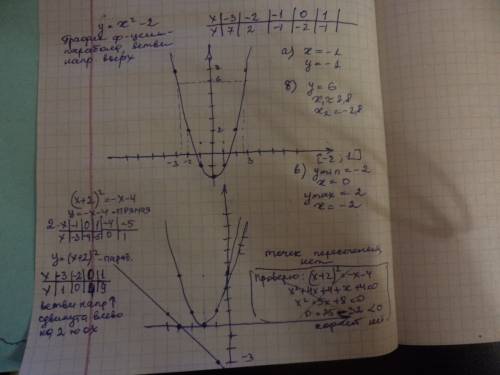 y = x² - 2
График ф-ции -
парабола, ветви
напр вверх
x | -3 | -2 | -1 | 0 | 1
y | 7 | 2 | -1 | -2 | -1
а) x = -1
y = -1
б) y = 6
x₁ ≈ 2,8
x₂ = -2,8
6
2
-3 -2 3
[-2; 1]
в) yмин = -2
x = 0
yмах = 2
x = -2
(x+2)² = -x-4
y = -x-4 - прямая
x | -1 | 0 | 1 | -4 | -5
y | -3 | -4 | -5 | 0 | 1
y = (x+2)² - параб.
x | -3 | -2 | 0 | 1
y | 1 | 0 | 4 | 9
ветви напр ↑
сдвинута влево
на 2 по ох
-3
точек пересечения
нет
Проверю: (x+2)² = -x-4
x² + 4x + 4 + x + 4 = 0
x² + 5x + 8 = 0
D = 25 - 32 < 0
корней нет